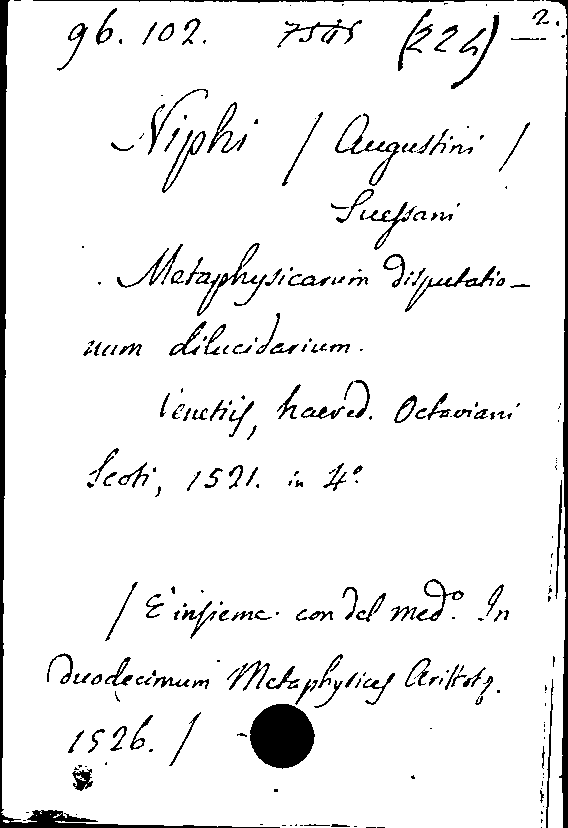 96. 102. (224) 2.
Niphi / Augustini /
Suessani
Metaphysicarum disputatio-
num dilucidarium.
Venetiis, haered. Octaviani
Scoti, 1521. in 4°.
/ E' insieme con del med.° In
duodecimum Metaphysices Aristot.
1526. /